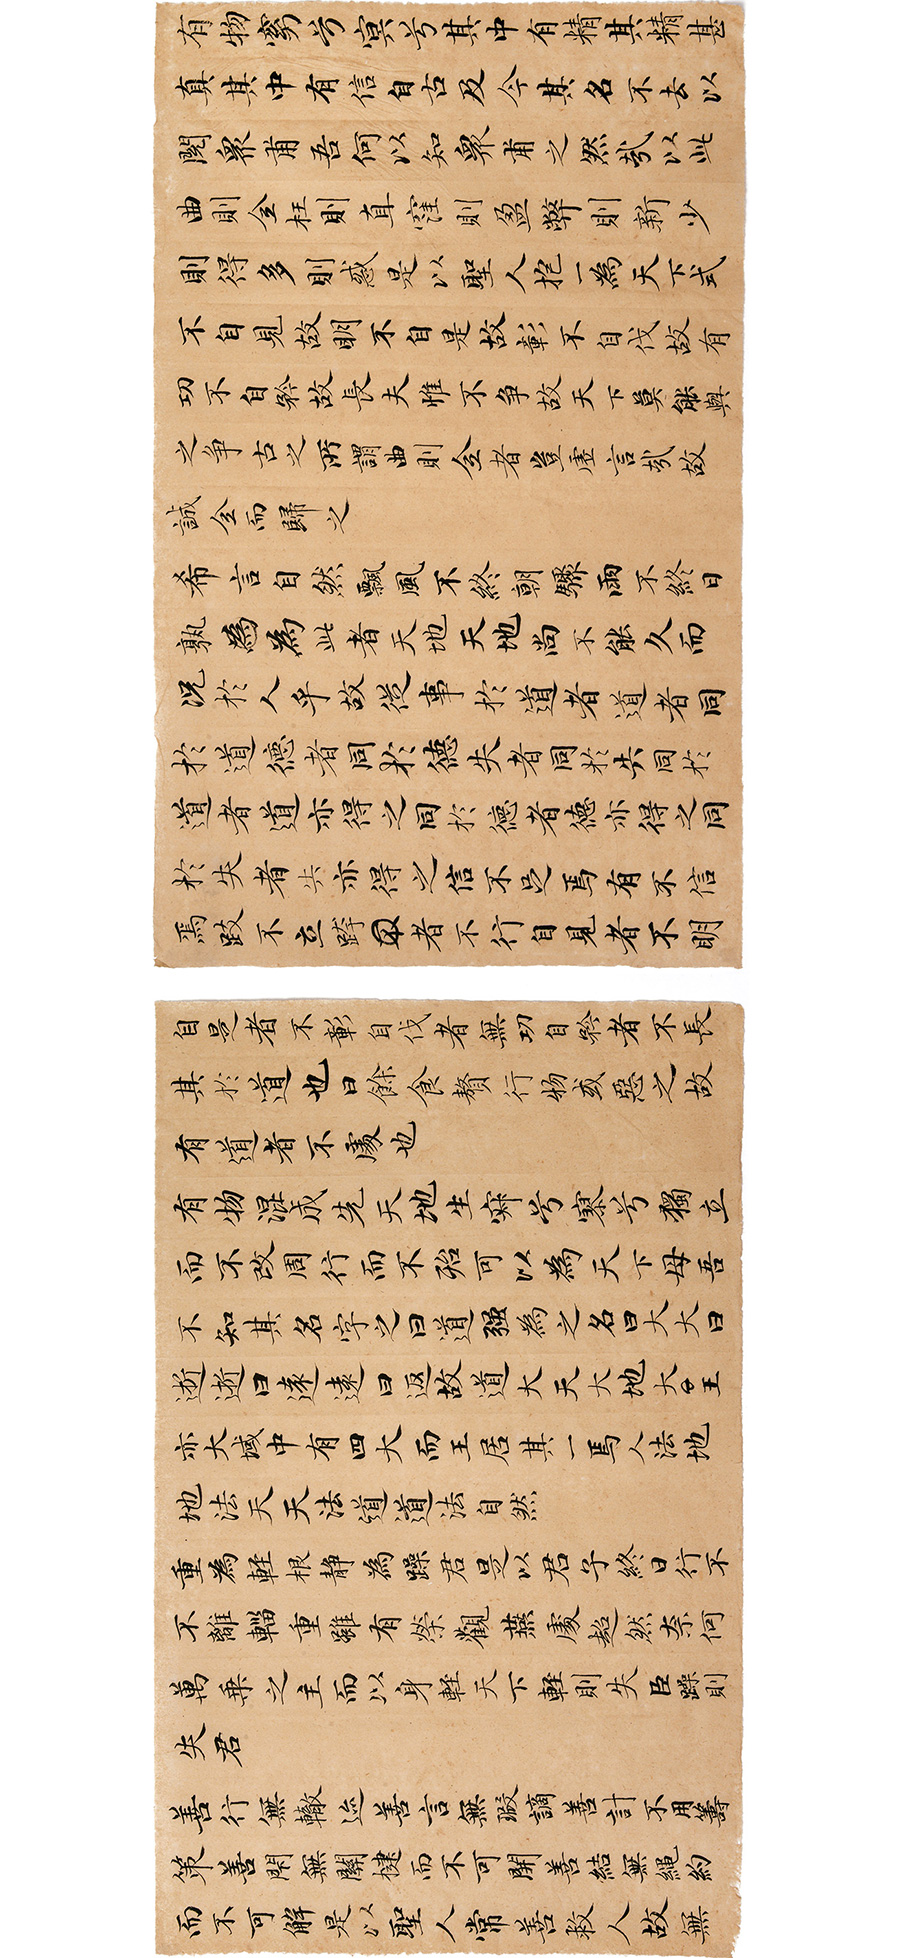 有物窈兮冥兮其中有精其精甚
真其中有信自古及今其名不去以
閱衆甫吾何以知衆甫之然哉以此
曲則全枉則直窪則盈弊則新少
則得多則惑是以聖人抱一為天下式
不自見故明不自是故彰不自伐故有
功不自矜故長夫惟不争故天下莫能與
之爭古之所謂曲則全者豈虛言哉故
誠全而歸之
希言自然飄風不終朝驟雨不終日
孰為為此者天地天地尚不能久而
況於人乎故從事於道者道者同
於道德者同於德失者同於失同於
道者道亦得之同於德者德亦得之同
於失者失亦得之信不足焉有不信
焉跂不立跨者不行自見者不明
自是者不彰自伐者無功自矜者不長
其於道也曰餘食贅行物或惡之故
有道者不處也
有物混成先天地生寂兮寥兮獨立
而不改周行而不殆可以為天下母吾
不知其名字之曰道強為之名曰大大曰
逝逝曰遠遠曰返故道大天大地大王
亦大域中有四大而王居其一焉人法地
地法天天法道道法自然
重為輕根靜為躁君是以君子終日行不
不離輜重雖有榮觀燕處超然奈何
萬乗之主而以身輕天下輕則失臣躁則
失君
善行無轍迹善言無瑕謫善計不用籌
策善閇無關楗而不可開善結無繩約
而不可解是以聖人常善救人故無